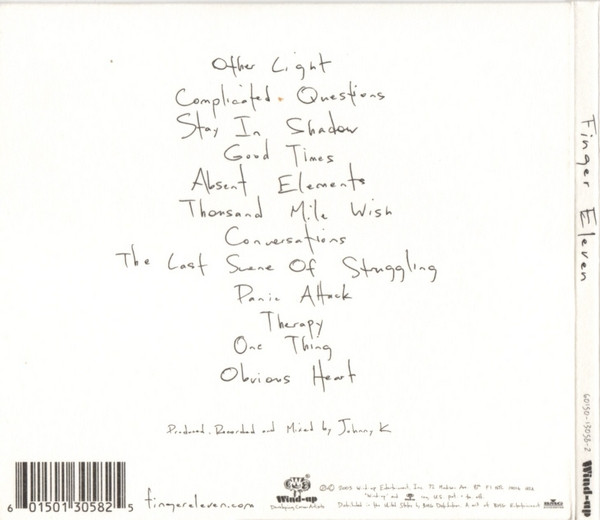 Other Light
Complicated Questions
Stay In Shadow
Good Times
Absent Elements
Thousand Mile Wish
Conversations
The Last Scene Of Struggling
Panic Attack
Therapy
One Thing
Obvious Heart
Produced, Recorded and Mixed by Johnny K
6 01501 30582 5
fingereleven.com
Wind-up
Developing Career Artists
Finger Eleven
60150-13058-2
Wind-up